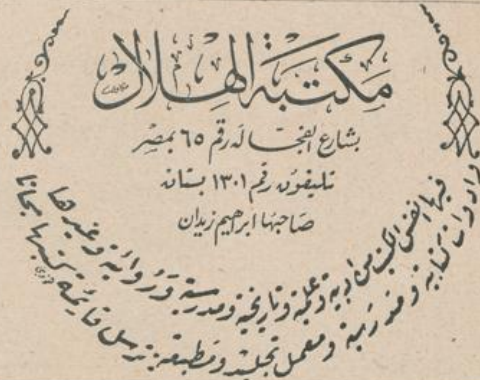 مكتبة الهلال
بشارع الفجالة رقم ٦٥ بمصر
تليفون رقم ١٣٠١ بستان
صاحبها ابراهيم زيدان
فيها انفس الكتب من ادبية وعلمية وتاريخية ومدرسية وروائية وغيرها
وادوات كتابية ومدرسية ومعمل تجليد ومطبعة. ترسل قائمة كتبها مجانا